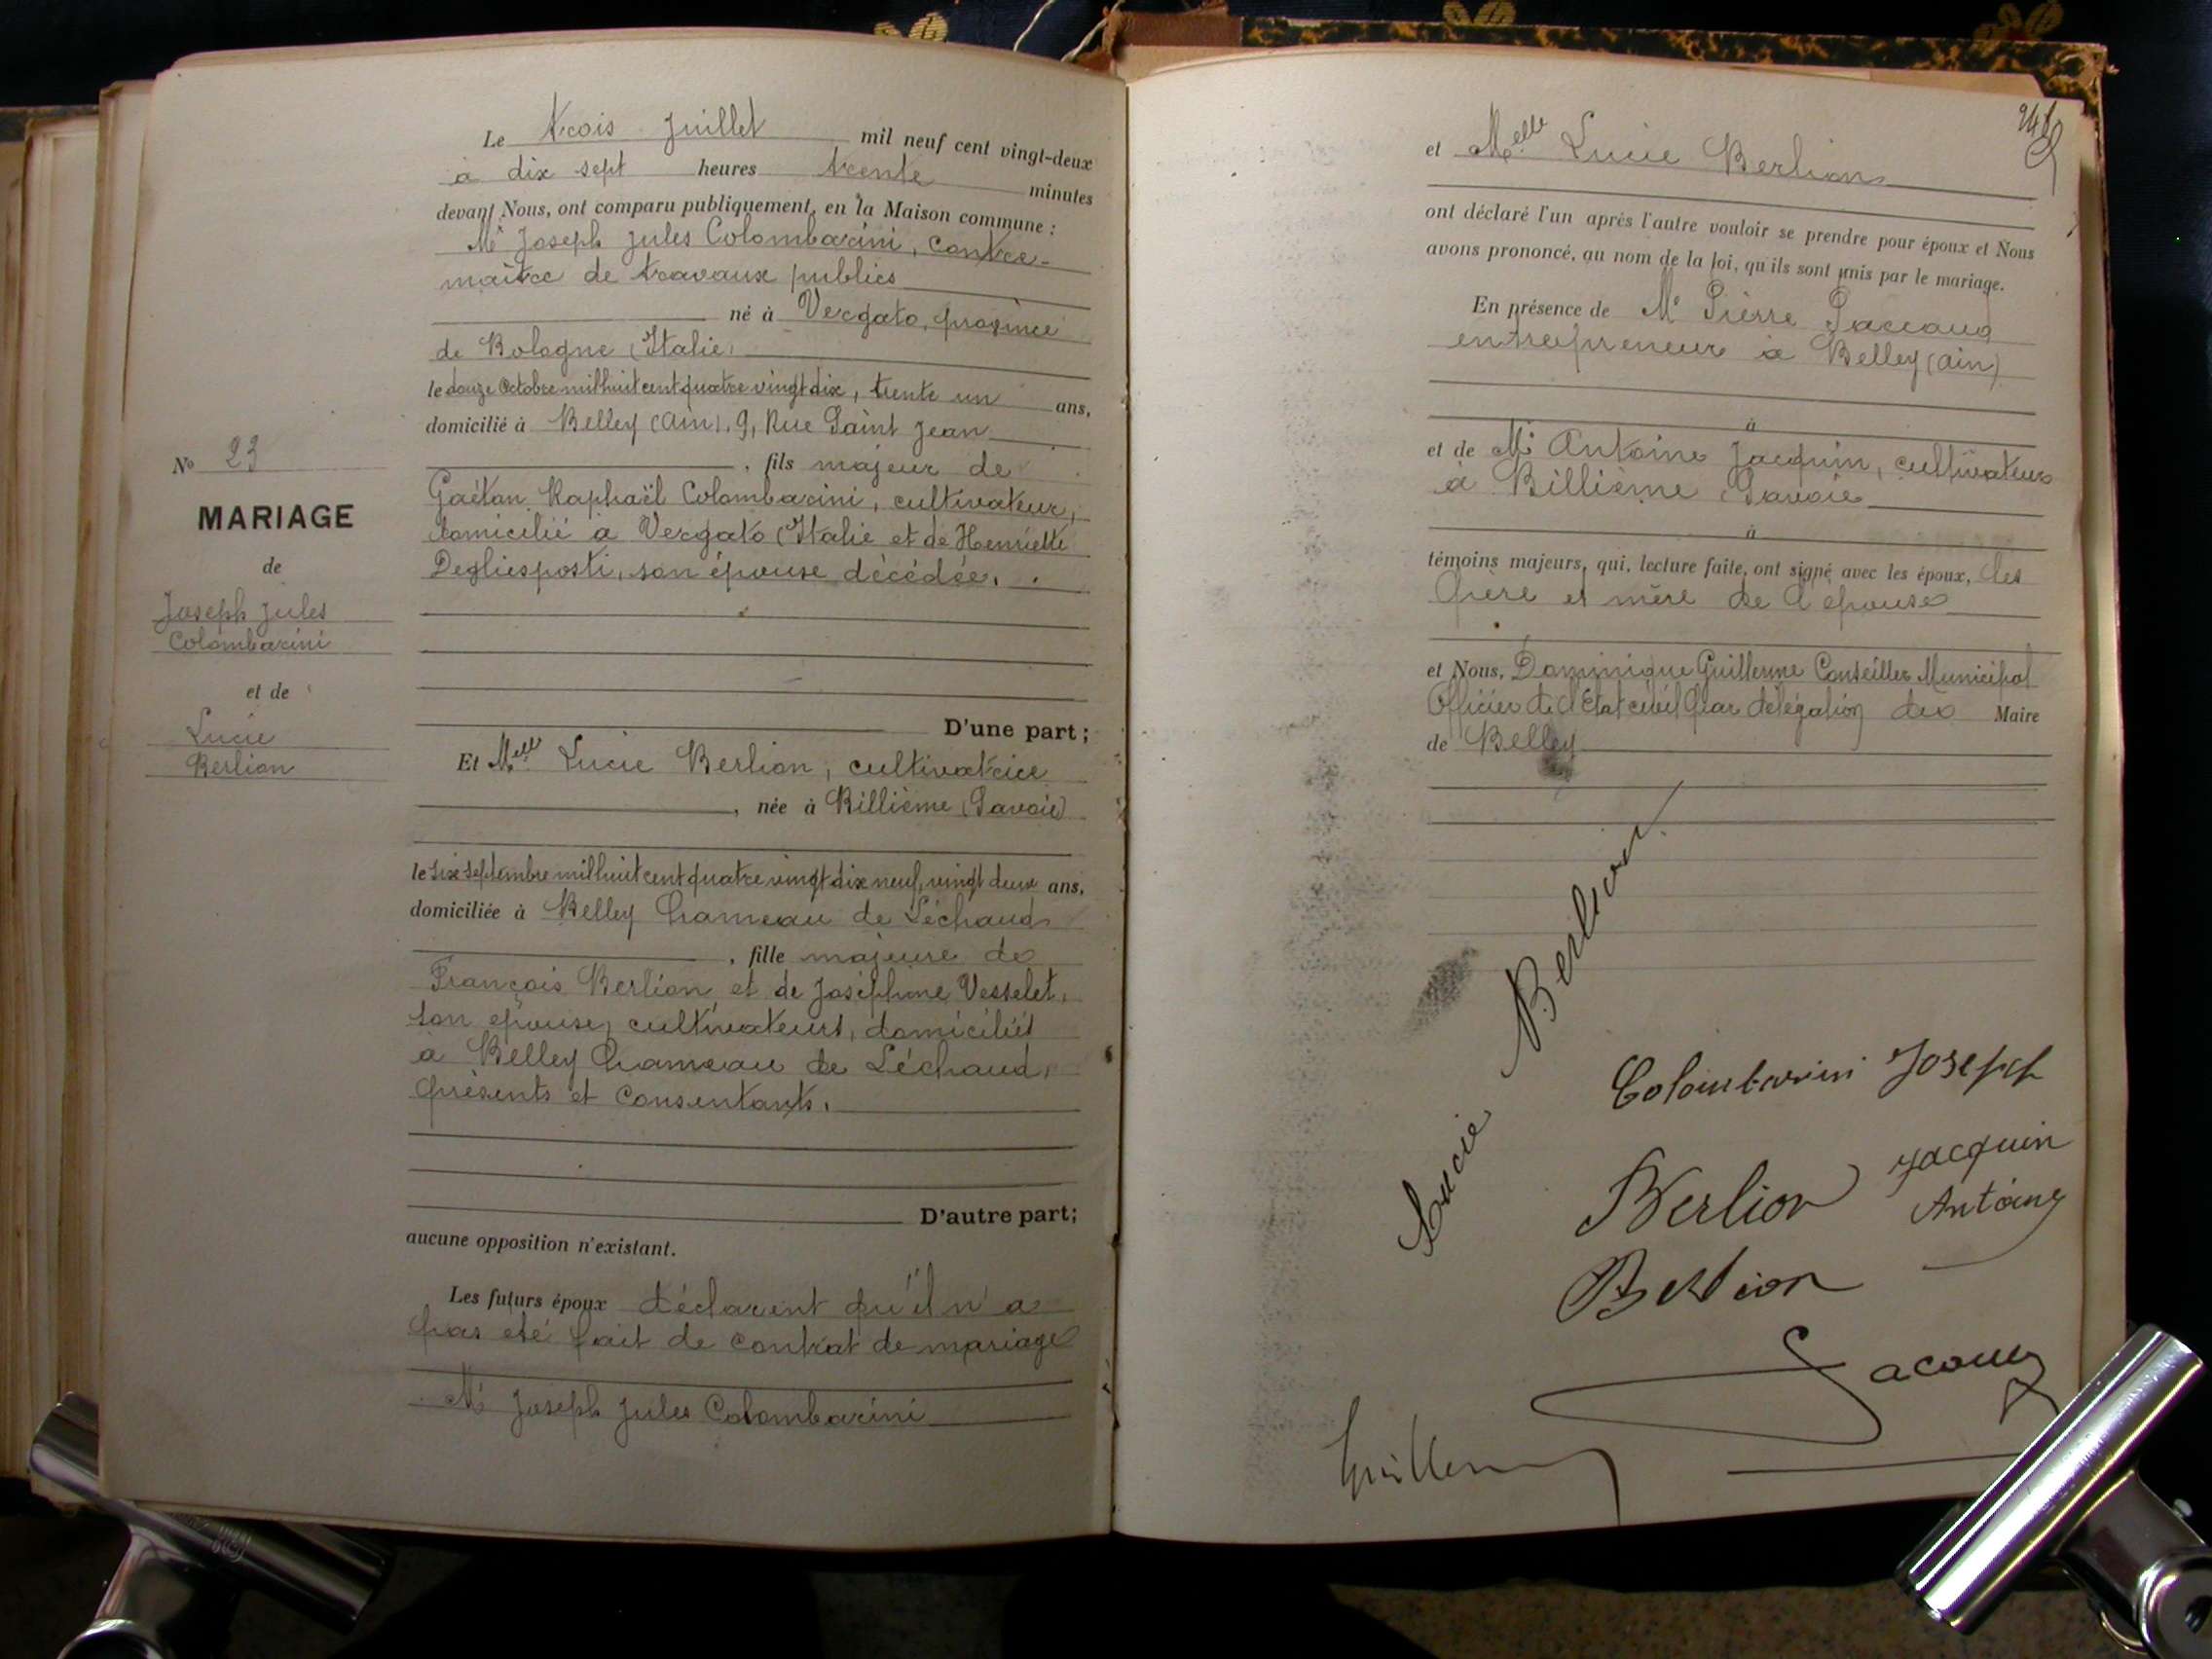 Le trois Juillet mil neuf cent vingt-deux
à dix sept heures trente minutes
devant Nous, ont comparu publiquement, en la Maison commune :
Mr Joseph Jules Colombarini, contre-
maître de travaux publics
né à Vergato, province
de Bologne (Italie)
le douze Octobre mil huit cent quatre vingt dix, trente un ans,
domicilié à Belley (Ain), 9, Rue Saint Jean
, fils majeur de
Gaétan Raphaël Colombarini, cultivateur,
domicilié à Vergato (Italie et de Henriette
Degliesposti, son épouse décédée.
No 23
MARIAGE
de
Joseph Jules
Colombarini
et de
Lucie
Berlion
D'une part ;
Et Melle Lucie Berlion, cultivatrice
, née à Billième (Savoie)
le six septembre mil huit cent quatre vingt dix neuf, vingt deux ans,
domiciliée à Belley hameau de Léchaud
, fille majeure de
François Berlion et de Joséphine Vesselet,
son épouse, cultivateurs, domiciliés
à Belley hameau de Léchaud,
présents et consentants.
D'autre part;
aucune opposition n'existant.
Les futurs époux déclarent qu'il n'a
pas été fait de contrat de mariage
Mr Joseph Jules Colombarini
et Melle Lucie Berlion
ont déclaré l'un après l'autre vouloir se prendre pour époux et Nous
avons prononcé, au nom de la loi, qu'ils sont unis par le mariage.
En présence de Mr Pierre Paccaud
entrepreneur à Belley (Ain)
à
et de Mr Antoine Jacquin, cultivateur
à Billième Savoie
à
témoins majeurs, qui, lecture faite, ont signé avec les époux, les
père et mère de l'épouse
et Nous, Dominique Guillerme Conseiller Municipal
Officier de l'Etat civil par délégation du Maire
de Belley
Lucie Berlion
Colombarini Joseph
Berlion
Jacquin
Antoine
Berlion